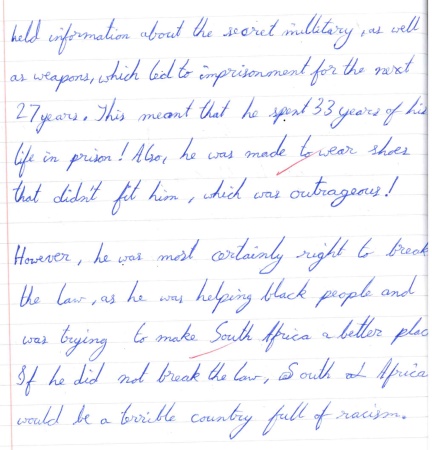 held information about the secret millitary, as well
as weapons, which led to imprisonment for the next
27 years. This meant that he spent 33 years of his
life in prison! Also, he was made to wear shoes
that didn't fit him, which was outrageous!
However, he was most certainly right to break
the law, as he was helping black people and
was trying to make South Africa a better plac
If he did not break the law, South Africa
would be a terrible country full of racism.